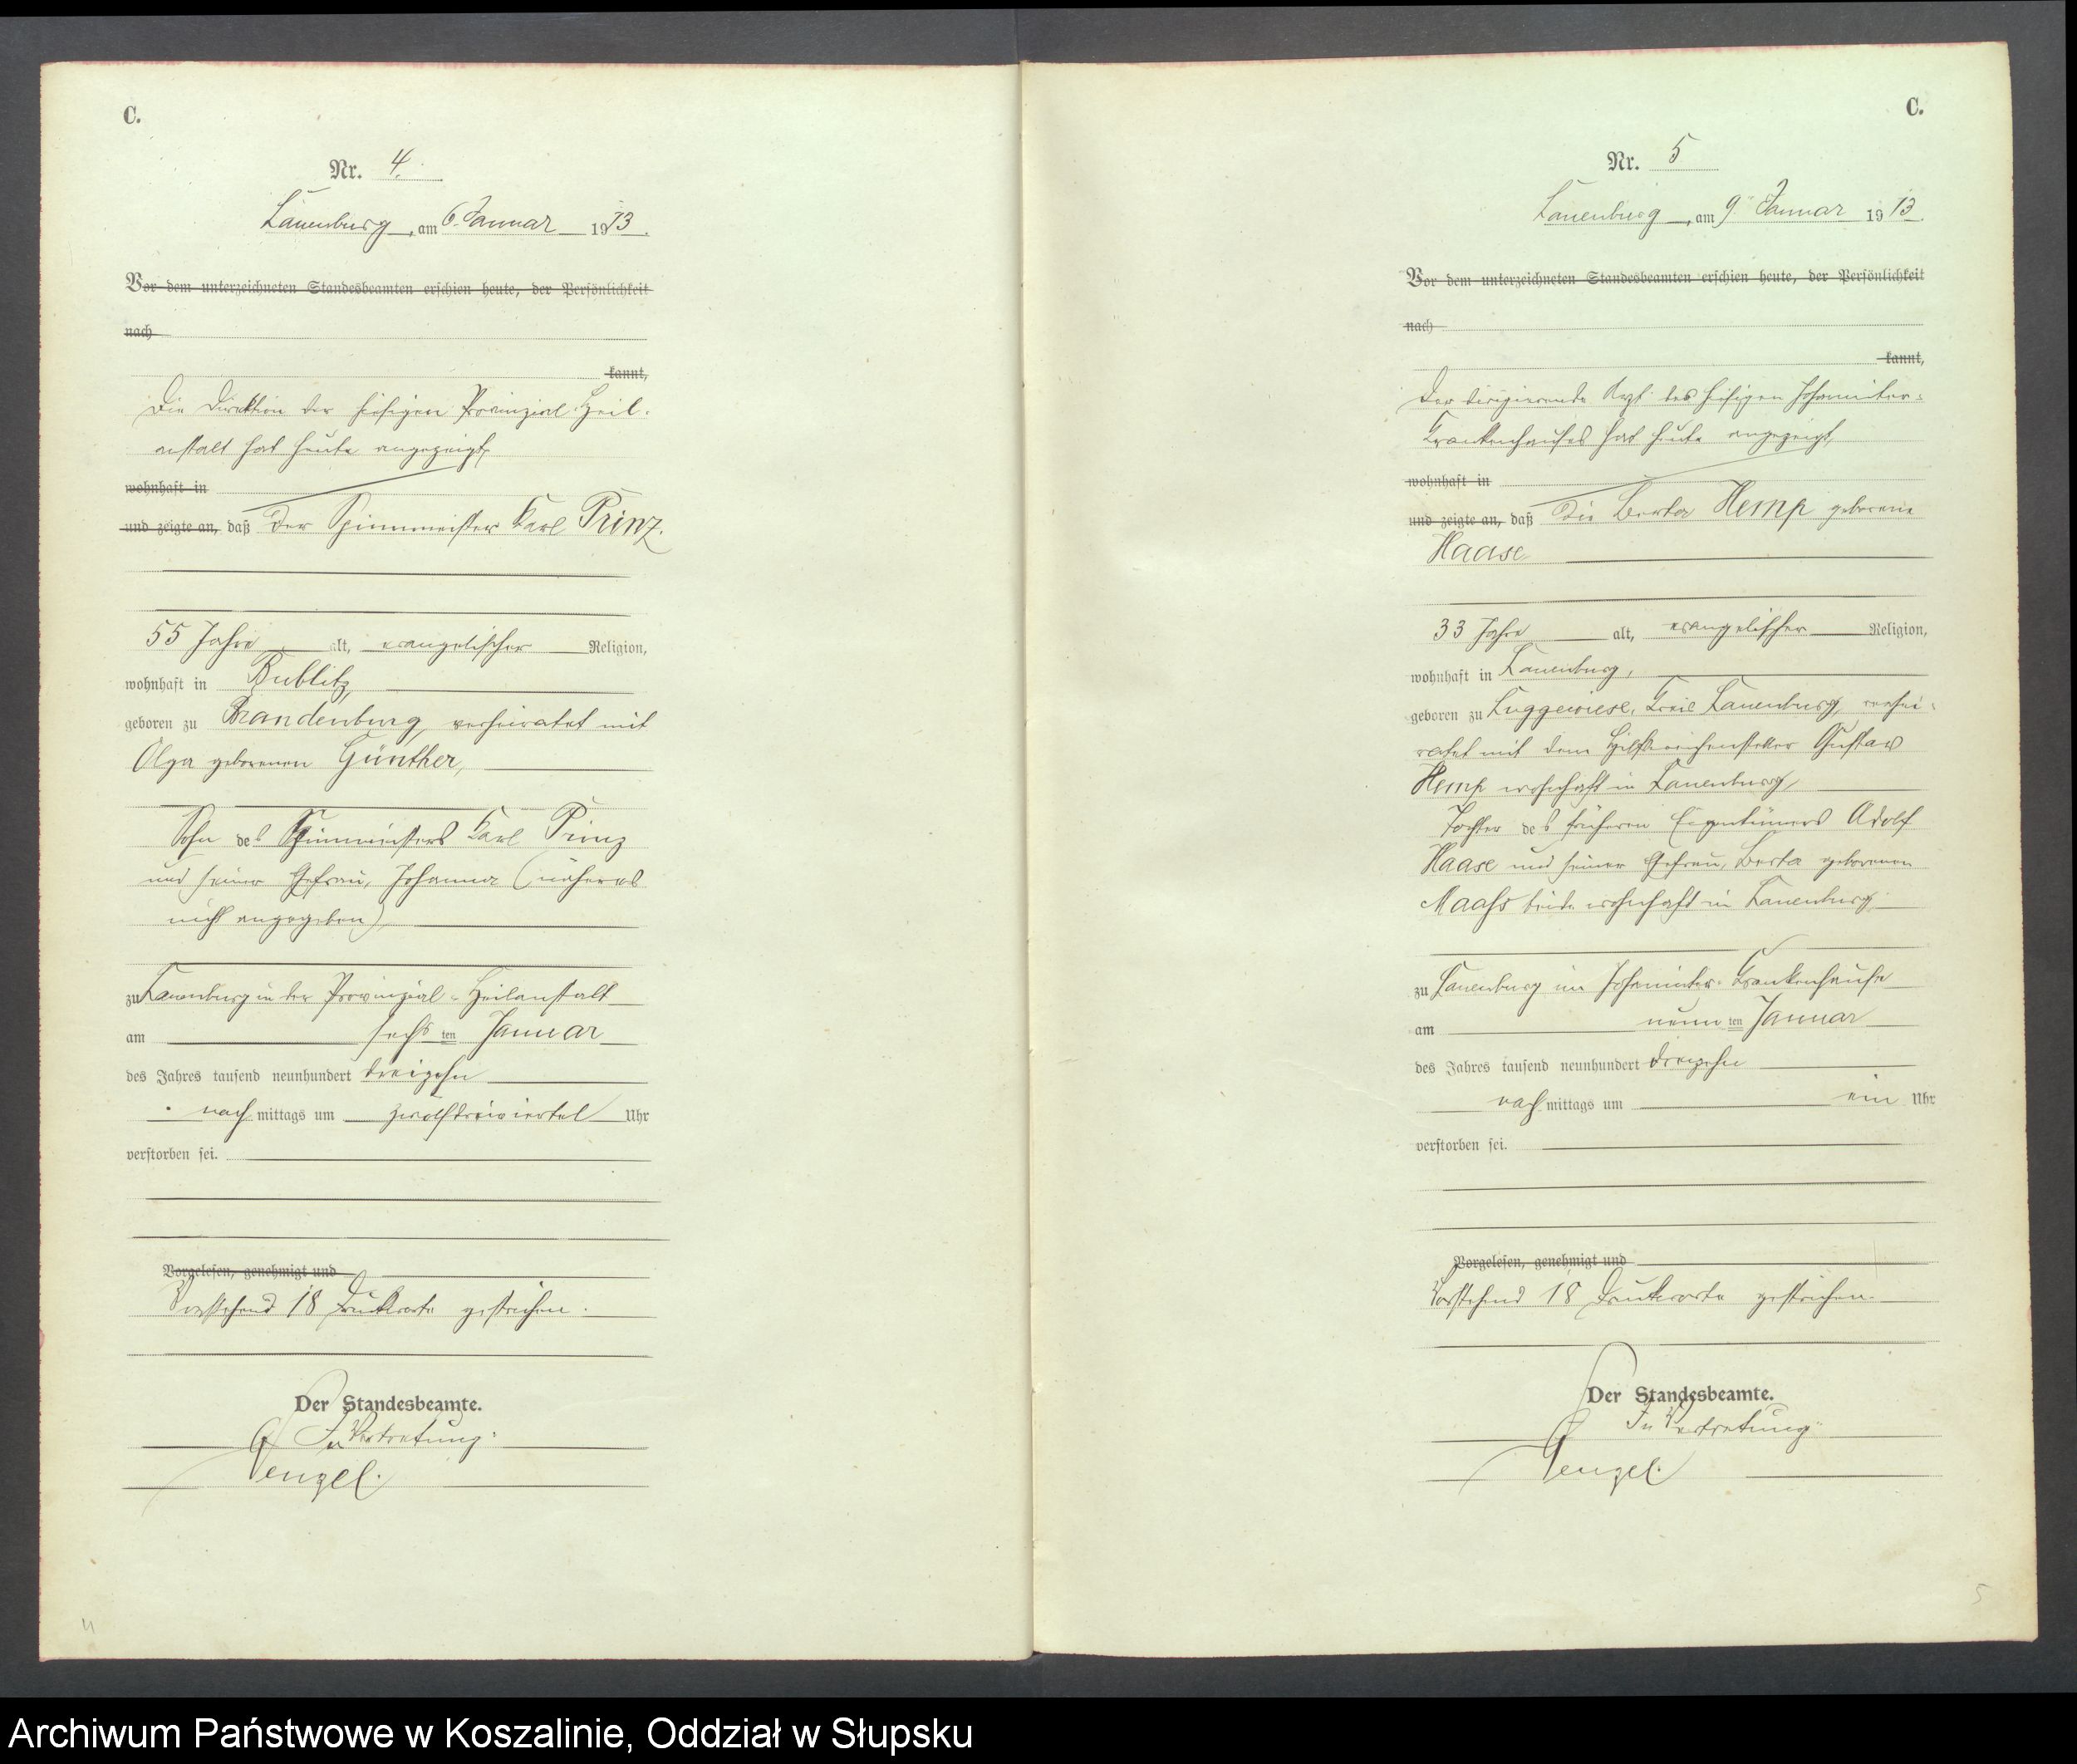 C.
Nr. 4.
Lauenburg, am 6. Januar 1913.
Vor dem unterzeichneten Standesbeamten erschien heute, der Persönlichkeit
nach
kannt,
Die Direktion der hiesigen Provinzial-Heil-
anstalt hat heute angezeigt,
wohnhaft in
und zeigte an, daß der Spinnmeister Karl Prinz.
55 Jahre alt, evangelischer Religion,
wohnhaft in Bublitz,
geboren zu Brandenburg, verheiratet mit
Olga geborenen Günther,
Sohn des Spinnmeisters Karl Prinz
und seiner Ehefrau, Johanna (näheres
nicht angegeben)
zu Lauenburg in der Provinzial-Heilanstalt
am sechsten Januar
des Jahres tausend neunhundert dreizehn
nachmittags um zwölfdreiviertel Uhr
verstorben sei.
Vorgelesen, genehmigt und
Vorstehend 18 Druckworte gestrichen.
Der Standesbeamte.
In Vertretung.
4
C.
Nr. 5
Lauenburg, am 9. Januar 1913.
Vor dem unterzeichneten Standesbeamten erschien heute, der Persönlichkeit
nach
kannt,
Der dirigierende Arzt des hiesigen Johanniter-
Krankenhauses hat heute angezeigt,
wohnhaft in
und zeigte an, daß die Berta Hemp geborene
Haase
33 Jahre alt, evangelischer Religion,
wohnhaft in Lauenburg,
geboren zu Luggewiese, Kreis Lauenburg, verhei-
ratet mit dem Hilfsweichensteller Gustav
Hemp wohnhaft in Lauenburg,
Tochter des früheren Eigentümers Adolf
Haase und seiner Ehefrau, Berta geborenen
Maaſs beide wohnhaft in Lauenburg
zu Lauenburg im Johanniter-Krankenhause
am neunten Januar
des Jahres tausend neunhundert dreizehn
nachmittags um ein Uhr
verstorben sei.
Vorgelesen, genehmigt und
Vorstehend 18 Druckworte gestrichen.
Der Standesbeamte.
In Vertretung
5
Archiwum Państwowe w Koszalinie, Oddział w Słupsku